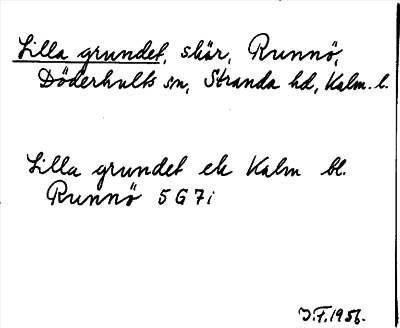 Lilla grundet, skär, Runnö,
Döderhults sn, Stranda hd, Kalm. l.
Lilla grundet ek Kalm bl.
Runnö 5 G 7i
J.F. 1956.